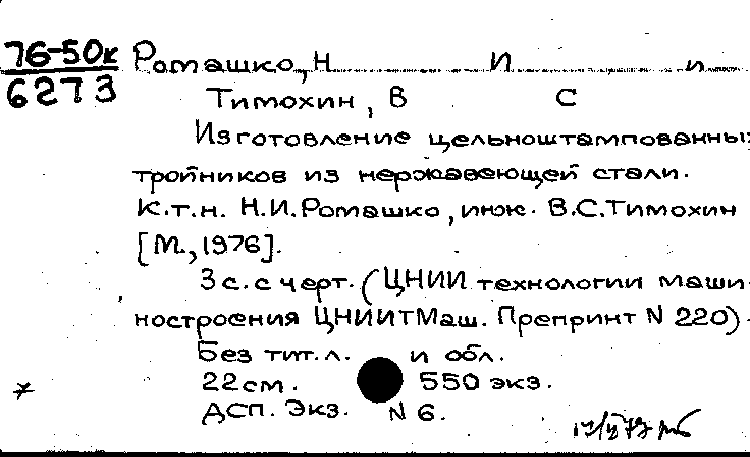 76-50к Ромашко, Н И и
6273
Тимохин, В С
Изготовление цельноштампованны
тройников из нержавеющей стали.
К.т.н. Н.И.Ромашко, инж. В.С.Тимохин
[М., 1976].
3 с. с черт. (ЦНИИ технологии маши-
ностроения ЦНИИТМаш. Препринт N 220).
Без тит.л. и обл.
22 см. 550 экз.
ДСП. Экз. N 6.